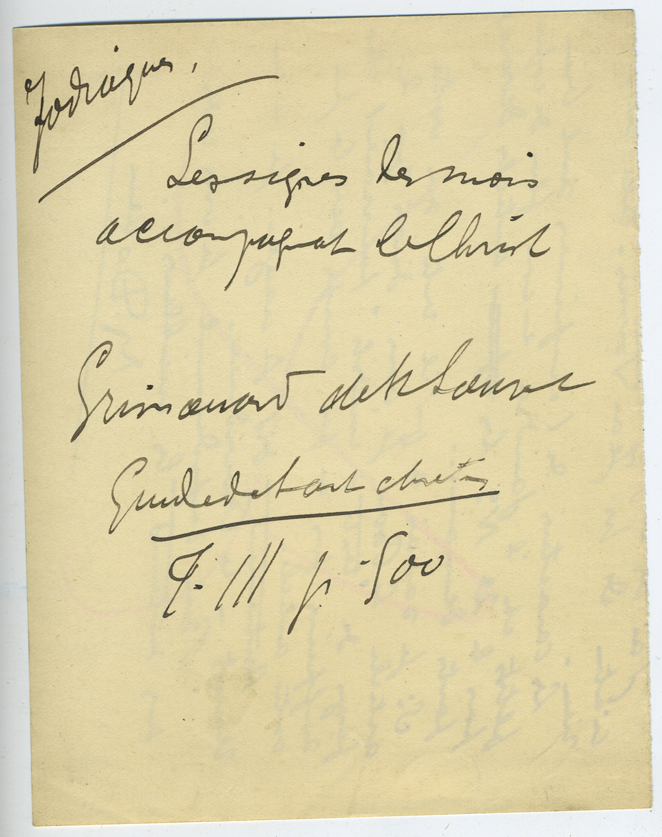 Zodiaques.
Les signes des mois
accompagnant le Christ
Grimouard de St Laurent
Guide de l'art chrétien
T. III p. 500